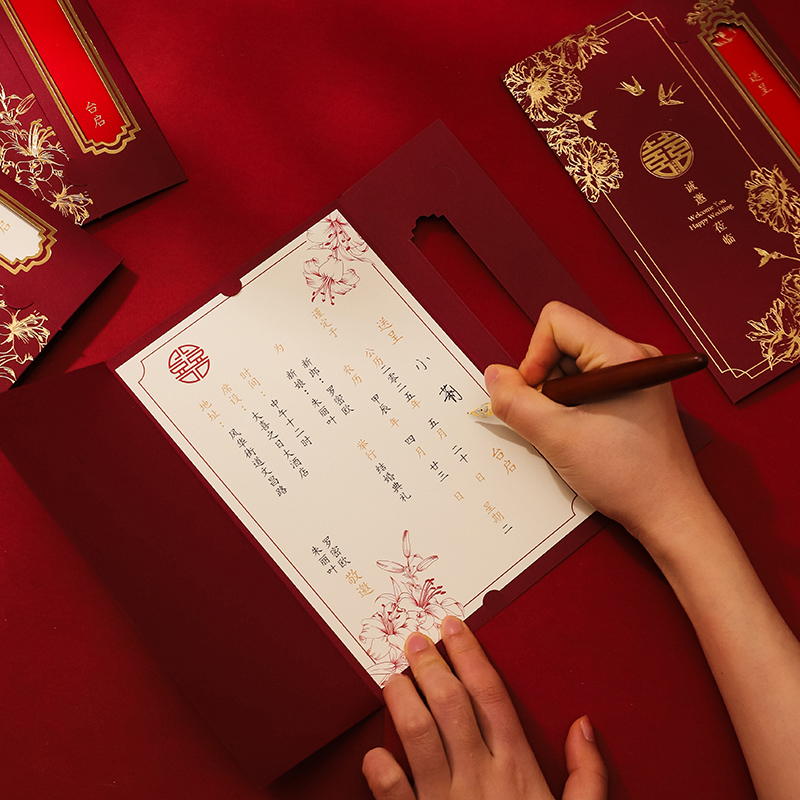 送呈 小菊 台启
谨定于
公历 二零二五年 五月 二十日 星期二
农历 甲辰年 四月 廿三日
为
新郎：罗密欧
新娘：朱丽叶
举行 结婚典礼
时间：中午十二时
席设：大喜之日大酒店
地址：风华街道文昌路
罗密欧
朱丽叶
敬邀
囍
送呈
囍
诚邀
Welcome You
Happy Wedding
莅临
台启
启